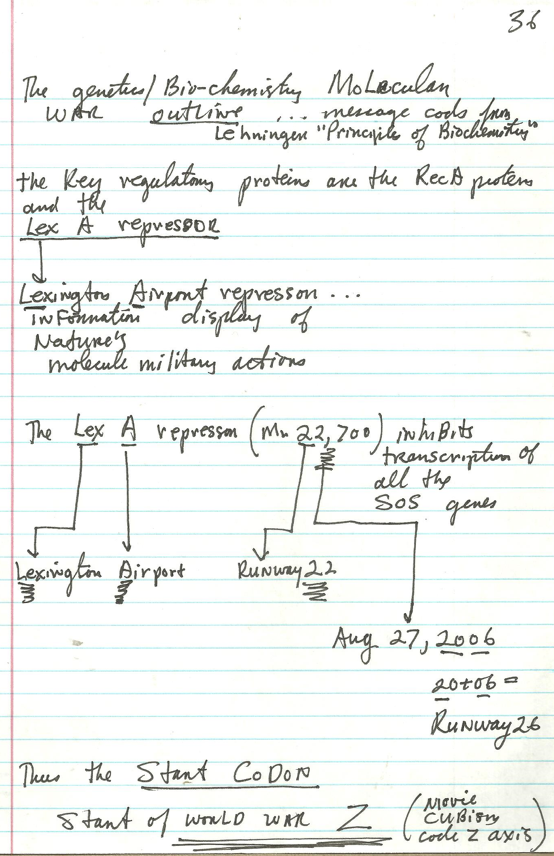 36
The genetics/Bio-chemistry Molecular
WAR outline ... message code from
Lehninger "Principle of Biochemistry"
the Key regulatory proteins are the RecA protein
and the
Lex A repressor
Lexington Airport repressor ...
Information display of
Nature's
molecule military actions
The Lex A repressor (Mr 22,700) inhibits
transcription of
all the
SOS genes
Lexington Airport Runway 22
Aug 27, 2006
20+06 =
Runway 26
Thus the Start CoDON
Start of WORLD WAR Z (Movie
code Z axis)